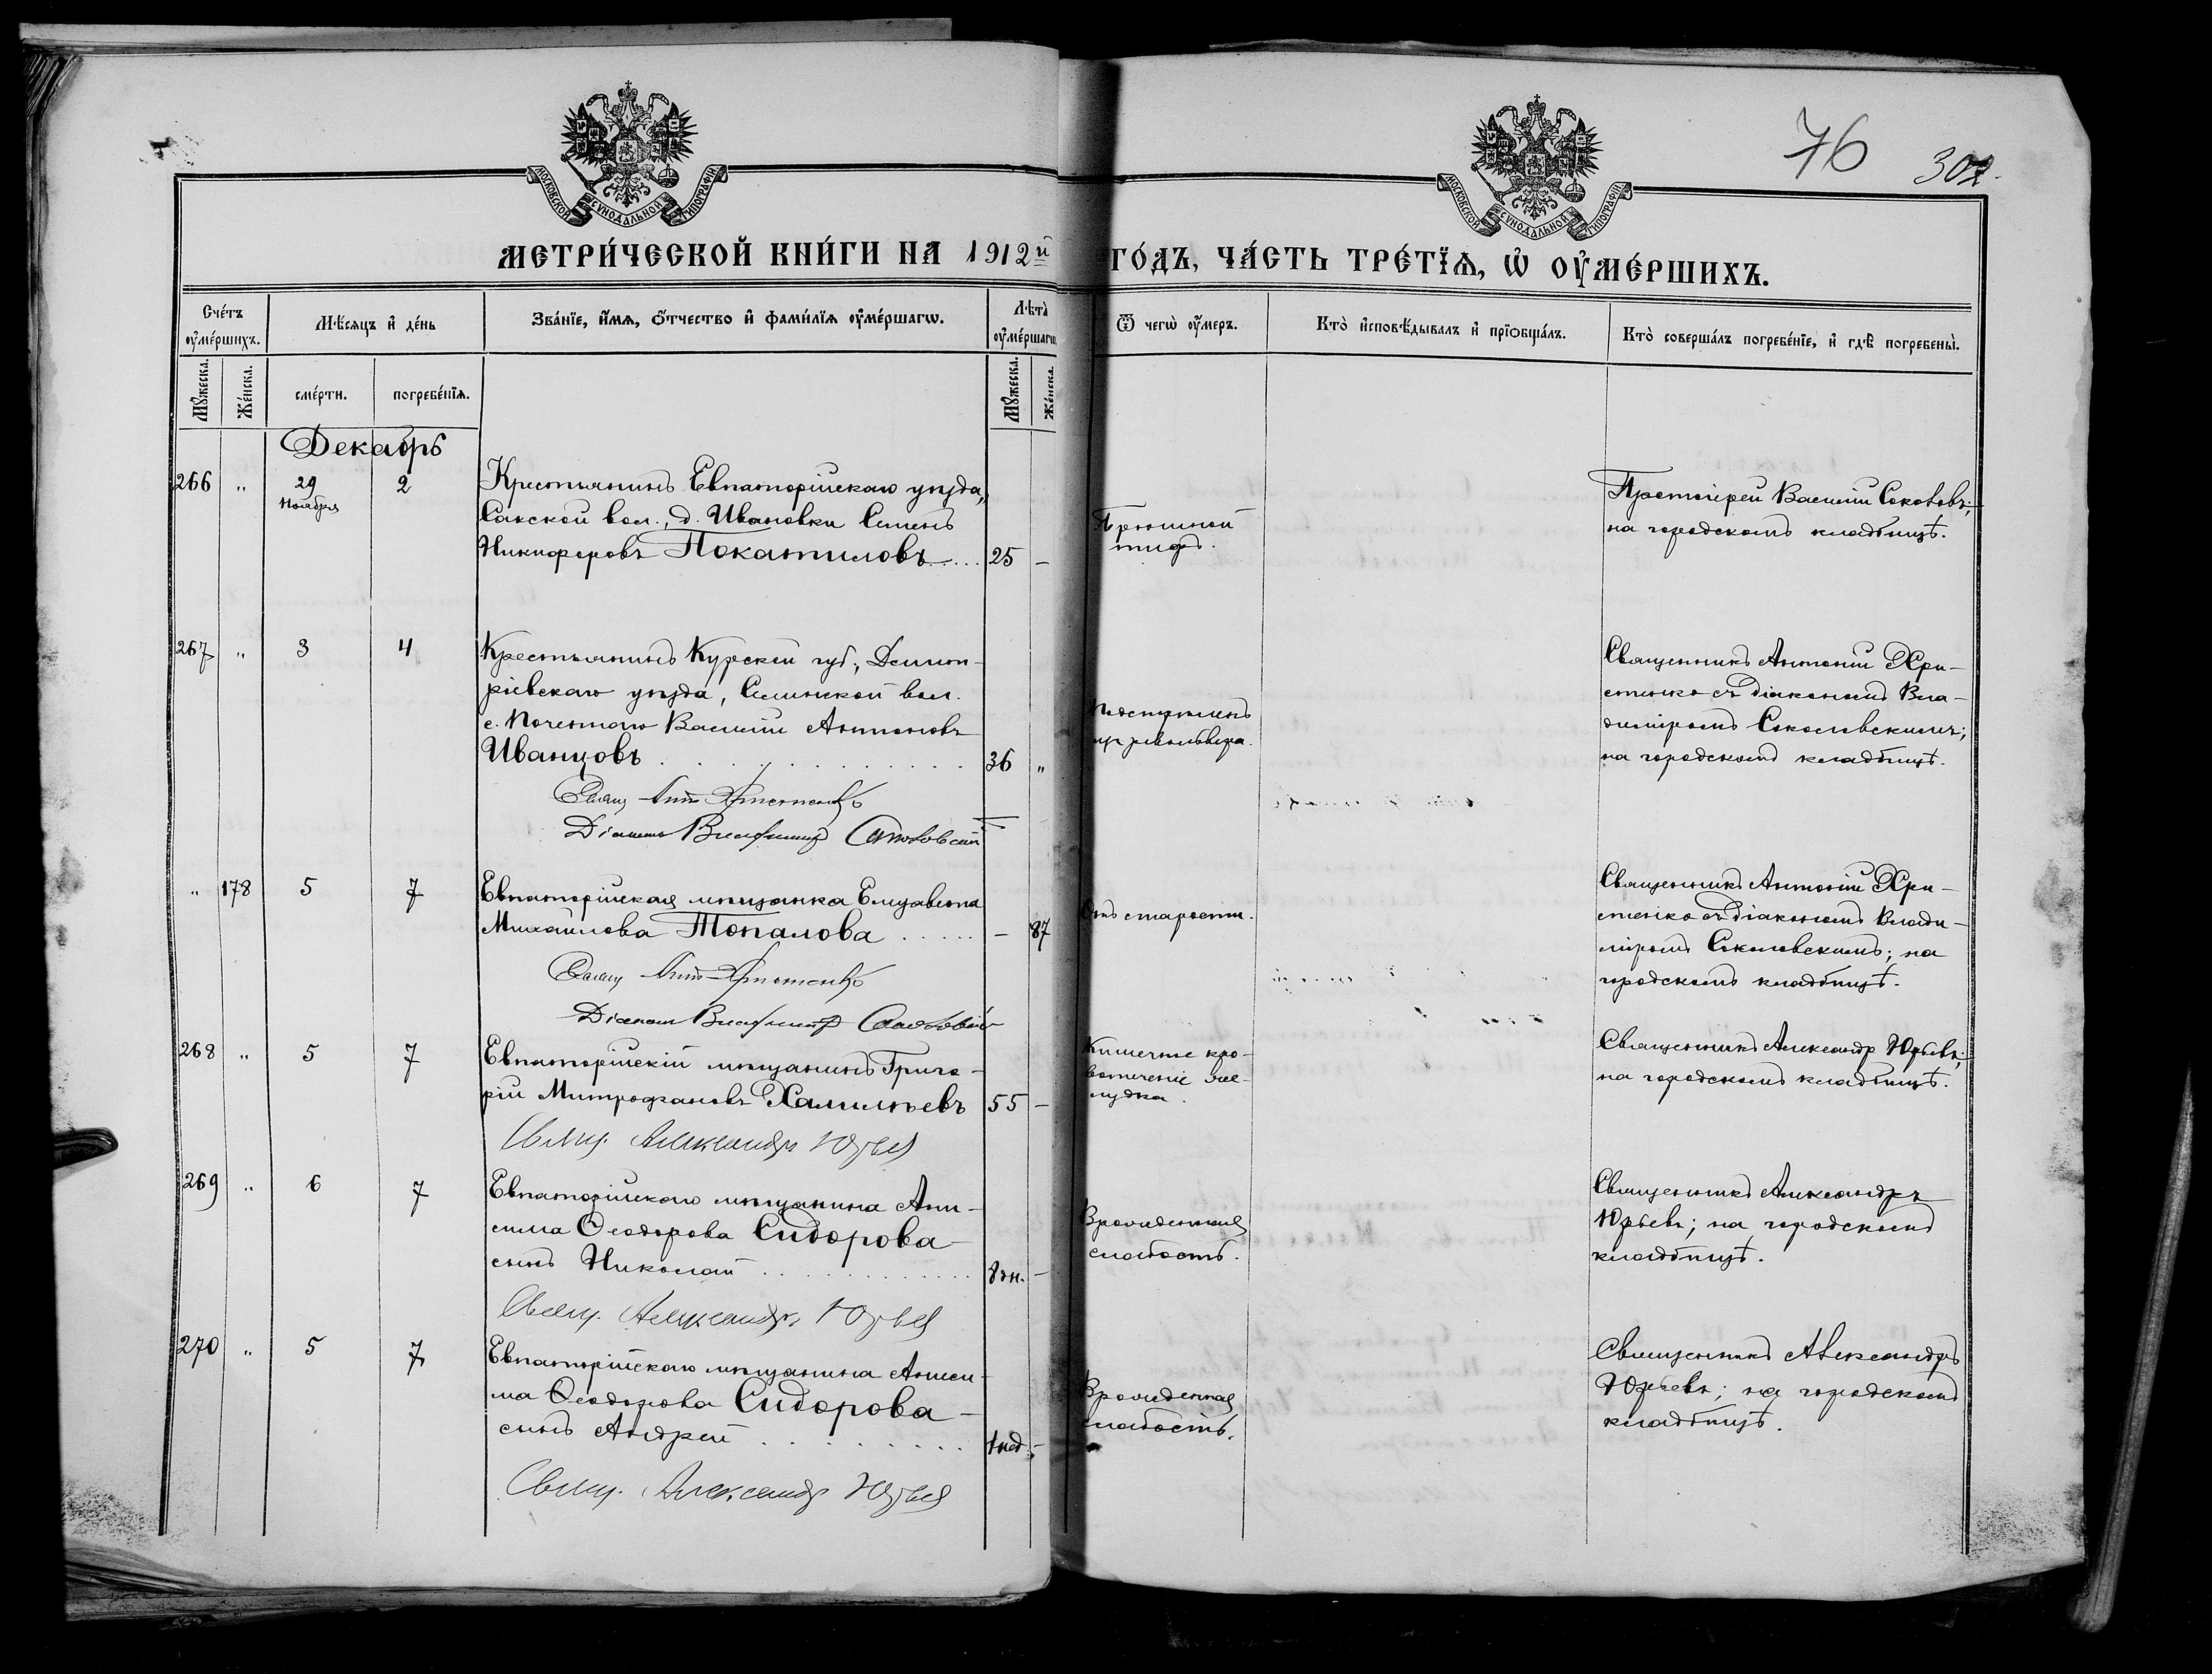 76 302.
МОСКОВСКОЙ СѴНОДАЛЬНОЙ ТИПОГРАФІИ
МОСКОВСКОЙ СѴНОДАЛЬНОЙ ТИПОГРАФІИ
МЕТРИ́ЧЕСКОЙ КНИ́ГИ НА 1912й ГО́ДЪ, ЧА́СТЬ ТРЕ́ТЇѦ, Ѡ҆ ОУ҆МЕ́РШИХЪ.
Сче́тъ оу҆ме́ршихъ.
Мѣ́сяцъ и҆ де́нь
Зва́нїе, и҆́мѧ, ѻ҆́тчество и҆ фами́лїѧ оу҆ме́ршагѡ.
Лѣ́та̀ оу҆ме́ршагѡ
Ѿ чегѡ̀ оу҆́меръ.
Кто̀ и҆сповѣ́дывалъ и҆ прїѻбща́лъ.
Кто̀ соверша́лъ погребе́нїе, и҆ гдѣ̀ погребены̀.
Мꙋ́жеска.
Же́нска.
сме́рти.
погребе́нїѧ.
Мꙋ́жеска.
Же́нска.
Декабрь
266 " 29 Ноября 2
Крестьянинъ Евпаторійскаго уѣзда,
Сакской вол., д. Ивановки Семенъ
Никифоровъ Покатиловъ..... 25 –
Брюшной
тифъ.
Протоіерей Василій Соколовъ;
на городскомъ кладбищѣ.
267 " 3 4
Крестьянинъ Курской губ., Дмит-
ріевскаго уѣзда, Селинской вол.
с. Почепнаго Василій Антоновъ
Иванцовъ . . . . . . . . . . . 36 "
Свящ. Ант. Христенко
Діаконъ Владимиръ Соколовскій
из револьвера.
Священникъ Антоній Хри-
стенко съ діакономъ Вла-
диміромъ Соколовскимъ;
на городскомъ кладбищѣ.
" 178 5 7
Евпаторійская мѣщанка Елизавета
Михайлова Топалова . . . . . – 87
Свящ. Ант. Христенко
Діаконъ Владимиръ Соколовскій
Отъ старости.
Священникъ Антоній Хри-
стенко съ діакономъ Влади-
міромъ Соколовскимъ; на
городскомъ кладбищѣ.
268 " 5 7
Евпаторійскій мѣщанинъ Григо-
рій Митрофановъ 55 –
Свящ. Александръ Юрьевъ
Кишечное кро-
вотеченіе же-
лудка.
Священникъ Александръ Юрьевъ;
на городскомъ кладбищѣ.
269 " 6 7
Евпаторійскаго мѣщанина Ани-
сима Ѳеодорова Сидорова
сынъ Николай . . . . . . . . . . 8 дн. –
Свящ. Александръ Юрьевъ
Врожденная
слабость.
Священникъ Александръ
Юрьевъ; на городскомъ
кладбищѣ.
270 " 5 7
Евпаторійскаго мѣщанина Аниси-
ма Ѳеодорова Сидорова
сынъ Андрей . . . . . . . . . 1 нед. –
Свящ. Александръ Юрьевъ
Врожденная
слабость.
Священникъ Александръ
Юрьевъ; на городскомъ
кладбищѣ.